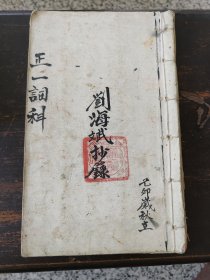 正一詞科
劉海斌抄錄
己卯歲秋立